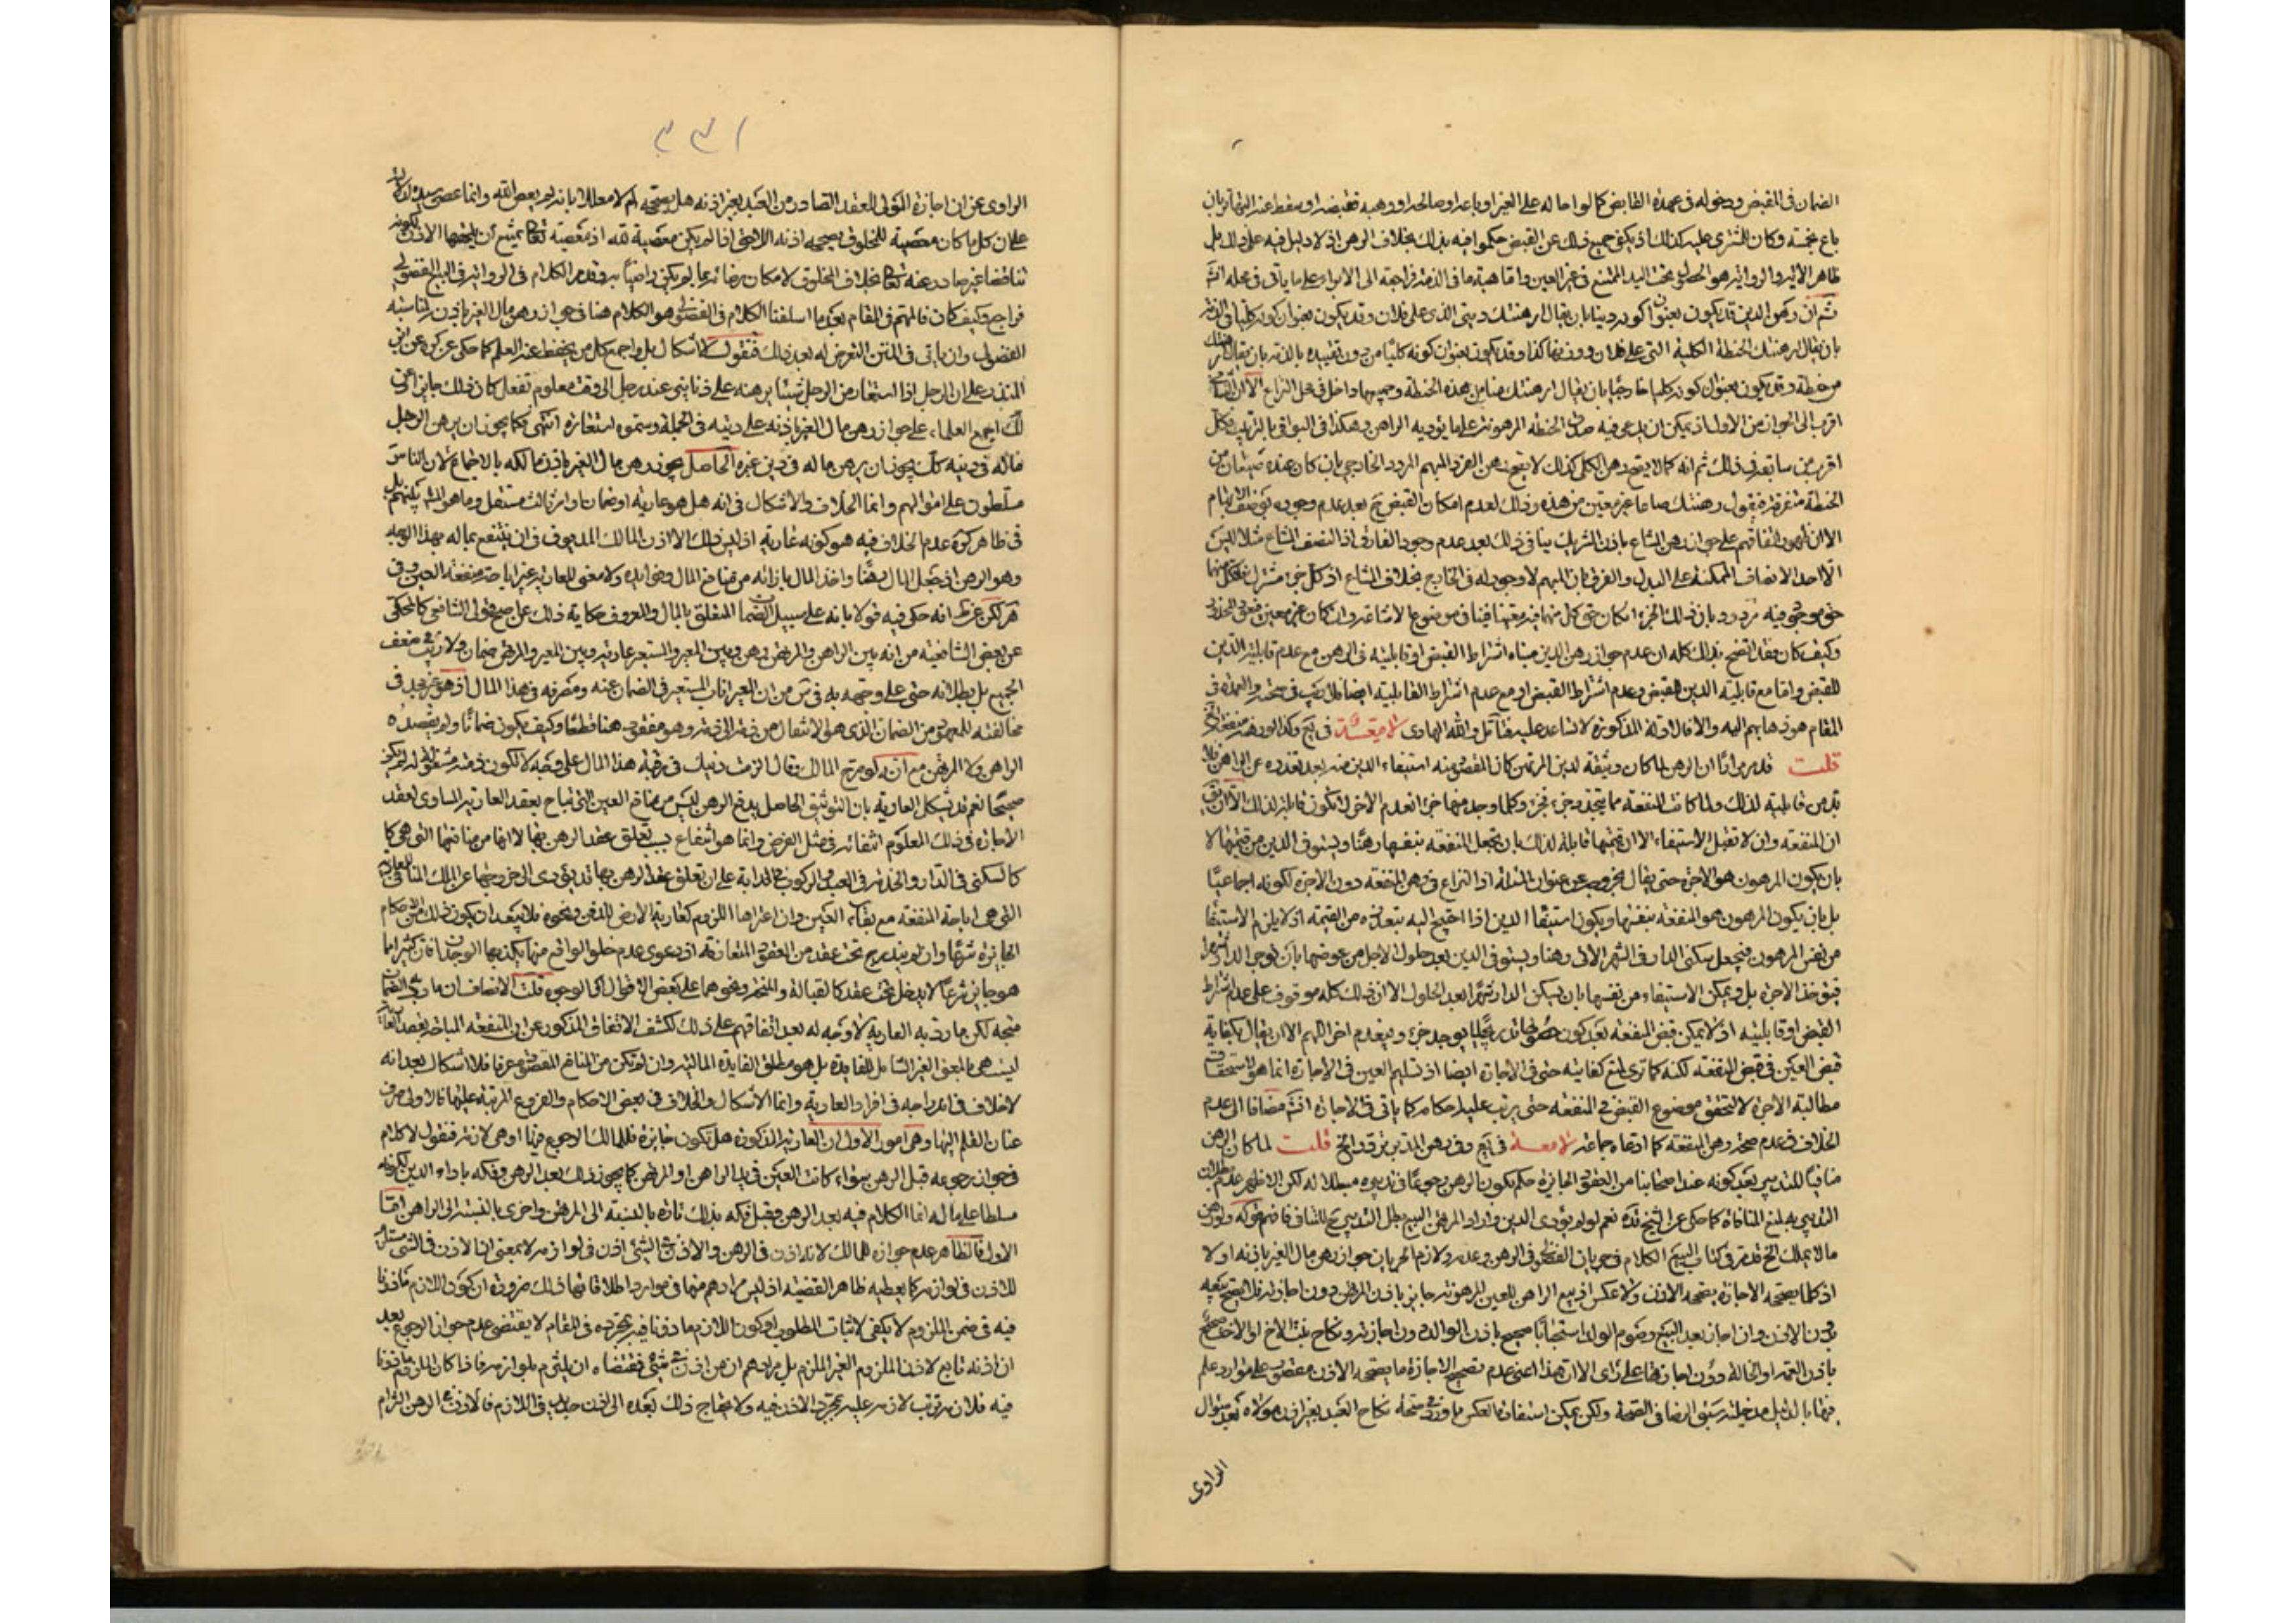 الضمان فى القبض ودخوله فى عهدة القابض كما لو احاله على الغير او باعه او صالحه او وهبه فقبضه او سقط عنه
باع بخمسة وكان للمشترى عليه كذلك اذ يكفى جميع ذلك عن القبض حكموا فيه بذلك بخلاف الرهن اذ لا دليل فيه على ذلك بل
ظاهر الآية والرواية هو الحصول تحت اليد الممتنع فى غير العين واما هبة ما فى الذمة فراجعة الى الابراء على ما يأتى فى محله انش
ثم ان رهن الدين قد يكون بعنوان كونه دينا بان يقال ارهنتك دينى الذى على فلان وقد يكون بعنوان كونه كليا فى الذمة
بان يقال ارهنتك الحنطة الكلية التى على فلان وقد يكون بعنوان كونه كليا من دون تقييده بالذمة بان يقال
من حنطة وقد يكون بعنوان كونه كليا خارجيا بان يقال ارهنتك منا من هذه الحنطة وجميعها داخل فى محل النزاع الا ان
اقرب الى الجواز من الاول اذ يمكن ان يدعى فيه صدق الحنطة المرهونة على ما يؤديه الراهن وهكذا فى البواقى بالترتيب فكل
اقرب من سابقه فى ذلك ثم انه كما لا يتجه رهن الكلى كذلك لا يتجه رهن الفرد المبهم المردد الخارجى بان كان عنده صيعان من
الحنطة متفرقة فيقول رهنتك صاعا غير معين من هذه وذلك لعدم امكان القبض ح بعد عدم وجوده بوصف الابهام
الا ان ظهور اتفاقهم على جواز رهن المشاع باذن الشريك ينافى ذلك بعد عدم وجود الفارق اذ النصف المشاع مثلا ليس
الا احد الانصاف الممكنة على البدل والفرق بان المبهم لا وجود له فى الخارج بخلاف المشاع اذ كل جزء مشترك
حق موجود فيه مردود بان ذلك الجزء ان كان حق كل منهما فيه معينا فينافى موضوع الاشاعة وان كان غير معين
وكيف كان فقد اتضح بذلك كله ان عدم جواز رهن الدين مبناه اشتراط القبض او قابليته فى الرهن مع عدم قابلية الدين
للقبض واما مع قابلية الدين للقبض وعدم اشتراط القبض او مع عدم اشتراط القابلية ايضا فلا ريب فى صحته والعمدة فى
المقام هو ذهابهم اليه والا فالادلة المذكورة لا تساعد عليه فتامل والله الهادى
قلت قد مر مرارا ان الرهن لما كان وثيقة لدين المرتهن كان المقصود منه استيفاء الدين منه بعد تعذره عن الراهن فلا
بد من قابليته لذلك ولما كانت المنفعة مما يتجدد جزء فجزء وكلما وجد منها جزء انعدم الآخر لا تكون قابلة لذلك الا ان
ان المنفعة وان لا تقبل الاستيفاء الا ان قيمتها قابلة لذلك بان تجعل المنفعة بنفسها رهنا ويستوفى الدين من قيمتها لا
بان يكون المرهون هو الاجرة حتى يقال بخروجه عن عنوان المسئلة اذ النزاع فى رهن المنفعة دون الاجرة لكونه اجماعيا
بل بان يكون المرهون هو المنفعة بنفسها ويكون استيفاء الدين اذا احتيج اليه بتعذره من القيمة اذ لا يلزم الاستيفاء
من نفس المرهون فيجعل سكنى الدار فى الشهر الآتى رهنا ويستوفى الدين بعد حلول الاجل من عوضها بان يوجر الدار
فيؤخذ الاجرة بل ويمكن الاستيفاء من نفسها بان يسكن الدار شهرا بعد الحلول الا ان ذلك كله موقوف على عدم اشتراط
القبض او قابليته اذ لا يمكن قبض المنفعة بعد كون حصولها تدريجيا يوجد جزء وينعدم آخر اللهم الا ان يقال بكفاية
قبض العين فى قبض المنفعة لكنه كما ترى لمنع كفايته حتى فى الاجارة ايضا اذ تسليم العين فى الاجارة انما هو لاستحقاق
مطالبة الاجرة لا لتحقق موضوع القبض فى المنفعة حتى يرتب عليه احكامه كما يأتى فى الاجارة انش مضافا الى عدم
الخلاف فى عدم صحة رهن المنفعة كما ادعاه جماعة وفى رهن المدبر تردد الخ قلت لما كان الرهن
منافيا للتدبير بعد كونه عند اصحابنا من العقود الجايزة حكم بكون الرهن رجوعا فى تدبيره مبطلا له لكن الاظهر عدم بطلان
التدبير به لمنع المنافاة كما حكى عن الشيخ قده نعم لو لم يؤدى الدين واراد المرتهن البيع بطل التدبير ح للتنافى
مالا يملك الخ قد مر فى كتاب البيع الكلام فى جريان الفضولى فى الرهن وعدمه ولازم الجريان جواز رهن مال الغير باذنه او لا
اذ كلما يصححه الاجازة يصححه الاذن ولا عكس اذ بيع الراهن للعين المرهونة جايز باذن المرتهن دون اجازته فلا يصح بيعه
بدون الاذن وان اجاز بعد البيع وصوم الولد استحبابا صحيح باذن الوالد دون اجازته ونكاح بنت الاخ او الاخت صحيح
باذن العمة او الخالة دون اجازتهما على رأى الا ان هذا اعنى عدم تصحيح الاجازة ما يصححه الاذن مقصور على موارد علم
فيها بالدليل مدخلية سبق الرضا فى الصحة ولكن يمكن استفادة العكس مما ورد فى صحة نكاح العبد بغير اذن مولاه بعد سؤال
الراوى
٢٣١
الراوى عن ان اجازة المولى للعقد الصادر من العبد بغير اذنه هل يصححه ام لا معللا بانه لم يعص الله وانما عصى سيده
على ان كل ما كان معصية للمخلوق يصححه اذنه اللاحق اذا لم يكن معصية لله اذ معصيته تعالى يمتنع ان يلحقها الاذن لكونه
تناقضا غير صادر عنه تعالى بخلاف المخلوق لامكان رضائه بما لم يكن راضيا به وقد مر الكلام فى الرواية فى البيع الفضولى
فراجع وكيف كان فالمهم فى المقام بعد ما اسلفنا الكلام فى الفضولى هو الكلام هنا فى جواز رهن مال الغير باذن لمناسبة
الفضولى وان يأتى فى المتن التعرض له بعد ذلك فنقول لا اشكال بل واجمع كل من يحفظ عنه العلم كما حكى عن كره عن ابن
المنذر على ان الرجل اذا استعار من الرجل شيئا يرهنه على دنانير عند رجل الى وقت معلوم ففعل كان ذلك جايزا
لك اجمع العلماء على جواز رهن مال الغير باذنه على دينه فى الجملة وسموه استعارة انتهى فكما يجوز ان يرهن الرجل
ماله فى دينه كك يجوز ان يرهن ماله فى دين غيره الحاصل يجوز رهن مال الغير باذن مالكه بالاجماع لان الناس
مسلطون على اموالهم وانما الخلاف والاشكال فى انه هل هو عارية او ضمان او امر ثالث مستقل وما هو
فى ظاهر كره عدم الخلاف فيه هو كونه عارية اذ ليس ذلك الا اذن المالك المديون فى ان ينتفع بماله بهذا الوجه
وهو الرهن اذ جعل المال رهنا واخذ المال بازائه من منافع المال وفوائده ولا معنى للعارية غير اباحة منفعة العين
لكن عن ط انه حكى فيه قولا بانه على سبيل الضمان المتعلق بالمال والمعروف حكاية ذلك عن اصح قولى الشافعى كالمحكى
عن بعض الشافعية من انه بين الراهن والمرتهن رهن وبين المعير والمستعير عارية وبين المعير والمرتهن ضمان ولا ريب فى ضعف
الجميع بل بطلانه حتى على وجهه به فى س من ان المعير اناب المستعير فى الضمان عنه ومصرفه فى هذا المال اذ هو غير مجد فى
مخالفته للمعهود من الضمان الذى هو الانتقال من ذمة الى ذمة وهو مفقود هنا قطعا وكيف يكون ضمانا ولم يقصده
الراهن ولا المرتهن مع انه لو صرح المالك وقال الزمت دينك فى رقبة هذا المال على وجه لا تكون ذمته مشغولة له لم يكن
صحيحا نعم قد يشكل العارية بان التوثيق الحاصل بدفع الرهن ليس من منافع العين التى تباح بعقد العارية المساوى لعقد
الاجارة فى ذلك المعلوم انتفائه فى مثل الفرض وانما هو انتفاع بسبب تعلق عقد الرهن بها لا انها من منافعها التى هى
كالسكنى فى الدار والخدمة فى العبد والركوب فى الدابة على ان تعلق عقد الرهن بها قد يؤدى الى خروجها عن الملك المنافى للعارية
التى هى اباحة المنفعة مع بقاء العين وان اعتراها اللزوم كعارية الارض للدفن ونحوه فلا يبعد ان يكون ذلك من الاحكام
الجايزة شرعا وان لم يندرج تحت عقد من العقود المتعارفة اذ دعوى عدم خلو الواقع منها يكذبها الوجدان فان كثيرا ما
هو جايز شرعا لا يدخل تحت عقد كالقبالة والمنحة ونحوهما على بعض الاقوال او الوجوه قلت الانصاف ان ما رد به الضمان
متجه لكن ما رد به العارية لا وجه له بعد اتفاقهم على ذلك لكشف الاتفاق المذكور عن ان المنفعة المباحة بعقد العارية
ليست هى بالمعنى الغير الشامل للفايدة بل هو مطلق الفايدة المالية وان لم تكن من المنافع المقصودة عرفا فلا اشكال بعد انه
لا خلاف فى اندراجه فى افراد العارية وانما الاشكال والخلاف فى بعض الاحكام والفروع المرتبة عليها فالاولى صرف
عنان القلم اليها وهى امور الاول ان العارية المذكورة هل تكون جايزة فللمالك الرجوع فيها او هى لازمة فنقول لا كلام
فى جواز رجوعه قبل الرهن سواء كانت العين فى يد الراهن او المرتهن كما يجوز ذلك بعد الرهن وفكه باداء الدين لكونه
مسلطا على ماله انما الكلام فيه بعد الرهن وقبل فكه بذلك تارة بالنسبة الى المرتهن واخرى بالنسبة الى الراهن اما
الاول فالظاهر عدم جوازه للمالك لانه اذن فى الرهن والاذن فى الشئ اذن فى لوازمه لا بمعنى ان الاذن فى الشئ مستلزم
للاذن فى لوازمه كما يعطيه ظاهر القضية اذ ليس مرادهم منها فى موارد اطلاقاتها ذلك ضرورة ان كون اللازم مأذونا
فيه فى ضمن الملزوم لا يكفى لاثبات المطلوب او كون اللازم مأذونا فيه بمجرده فى المقام لا يقتضى عدم جواز الرجوع بعد
ان اذنه تابع لاذن الملزوم الغير الملزم بل مرادهم ان من اذن فى شئ فمقتضاه ان يلتزم بلوازمه فاذا كان الملزوم مأذونا
فيه فلازمه ترتب لازمه عليه بمجرد الاذن فيه ولا يحتاج ذلك بعده الى اذن جديد فى اللازم فالاذن فى الرهن التزام